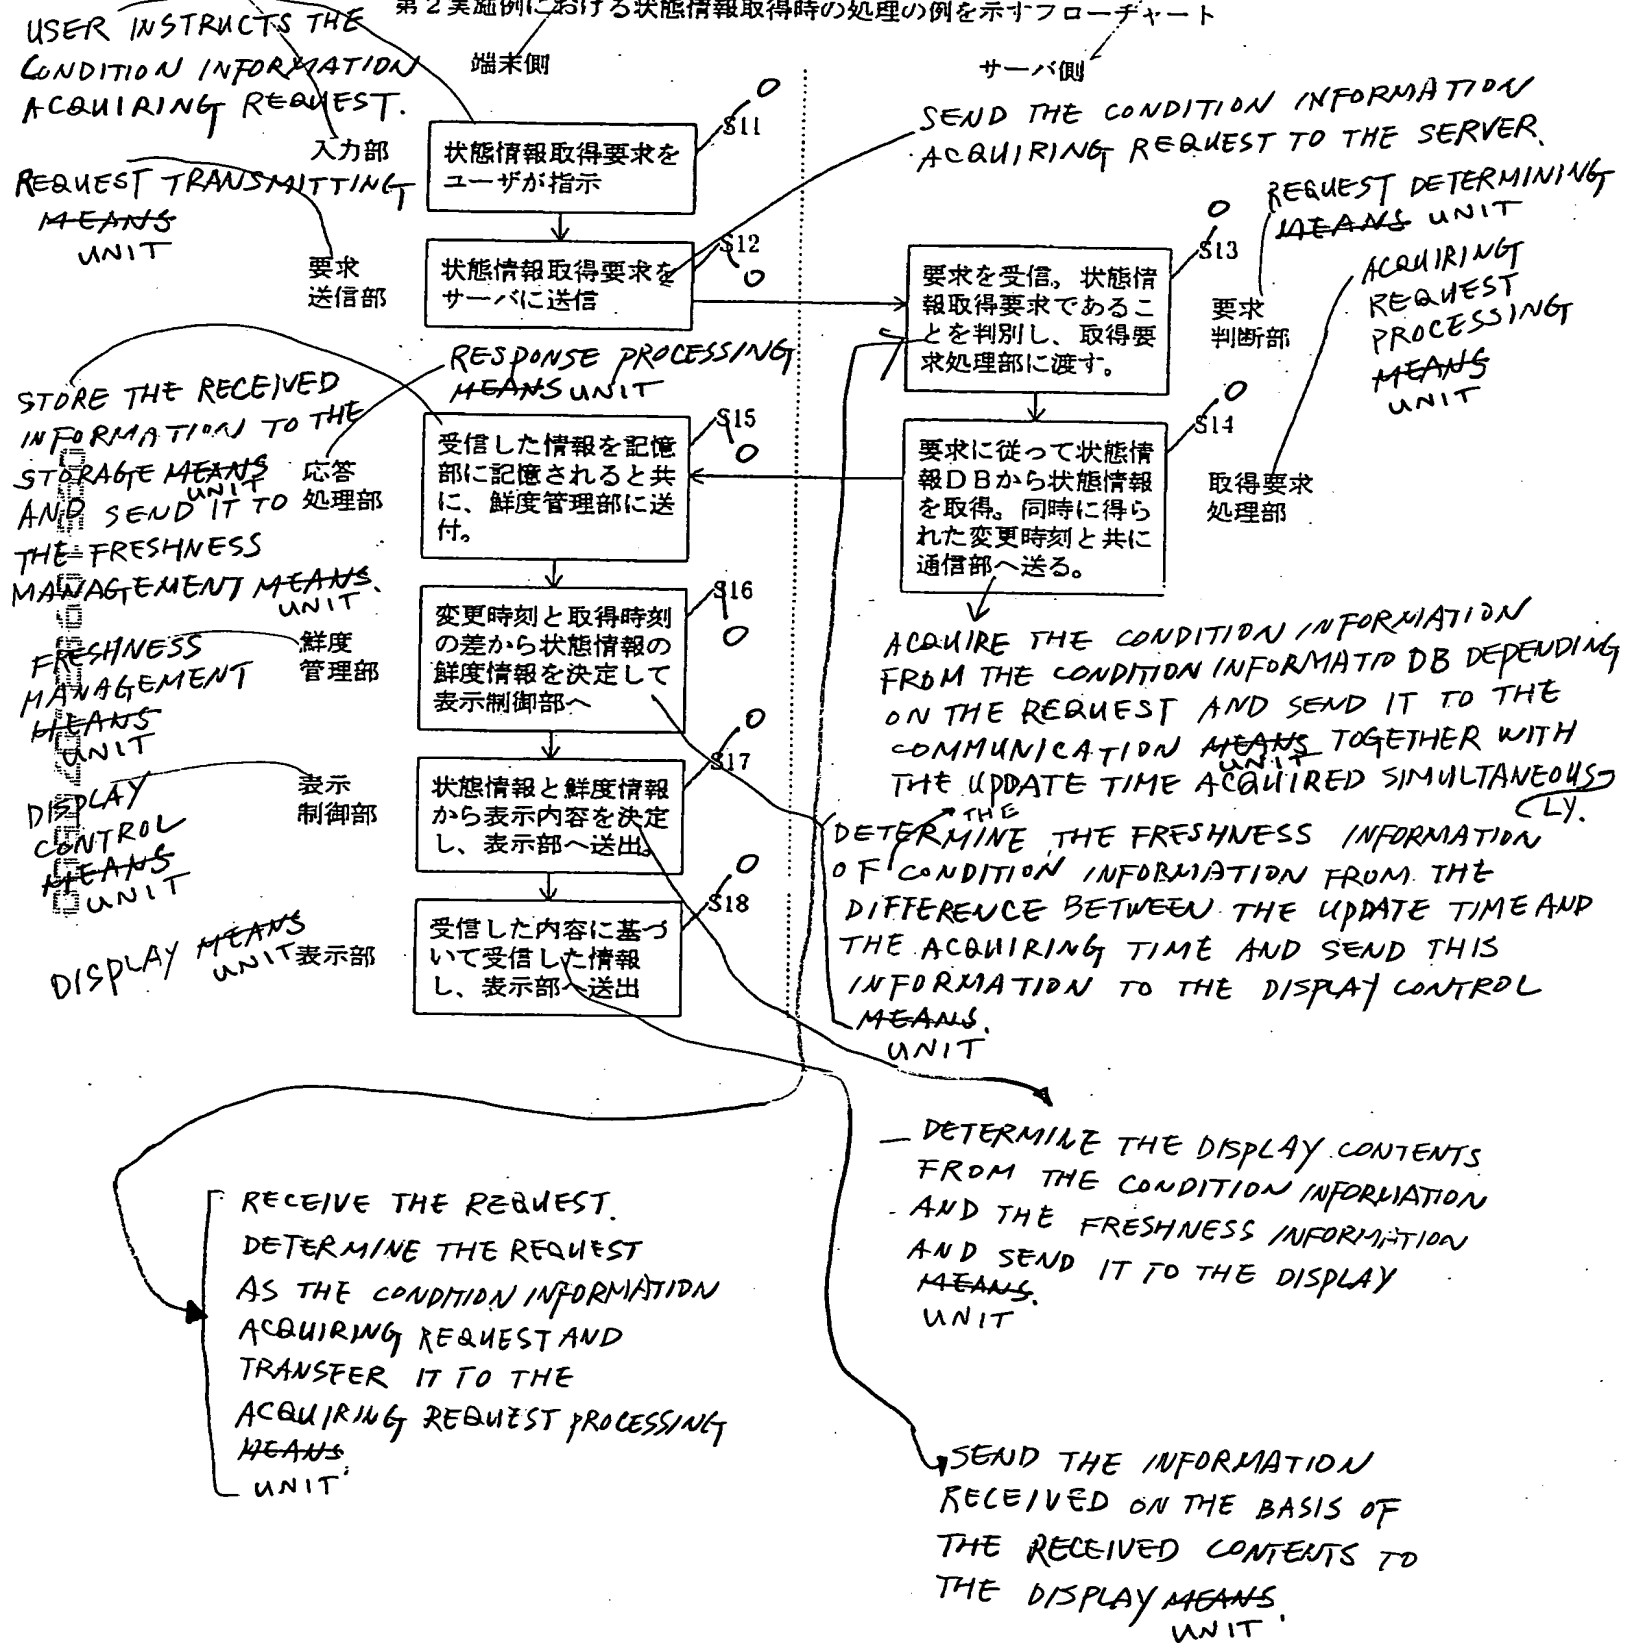 第2実施例における状態情報取得時の処理の例を示すフローチャート
USER INSTRUCTS THE
CONDITION INFORMATION
ACQUIRING REQUEST.
端末側
サーバ側
入力部
状態情報取得要求を
ユーザが指示
S11
0
SEND THE CONDITION INFORMATION
ACQUIRING REQUEST TO THE SERVER.
REQUEST TRANSMITTING
MEANS
UNIT
要求
送信部
状態情報取得要求を
サーバに送信
S12
0
要求を受信。状態情
報取得要求であるこ
とを判別し、取得要
求処理部に渡す。
S13
0
REQUEST DETERMINING
MEANS UNIT
要求
判断部
ACQUIRING
REQUEST
PROCESSING
MEANS
UNIT
RESPONSE PROCESSING
MEANS UNIT
STORE THE RECEIVED
INFORMATION TO THE
STORAGE MEANS
UNIT
AND SEND IT TO
THE FRESHNESS
MANAGEMENT MEANS.
UNIT
応答
処理部
受信した情報を記憶
部に記憶されると共
に、鮮度管理部に送
付。
S15
0
要求に従って状態情
報DBから状態情報
を取得。同時に得ら
れた変更時刻と共に
通信部へ送る。
S14
0
取得要求
処理部
FRESHNESS
MANAGEMENT
MEANS
UNIT
鮮度
管理部
変更時刻と取得時刻
の差から状態情報の
鮮度情報を決定して
表示制御部へ
S16
0
ACQUIRE THE CONDITION INFORMATION
FROM THE CONDITION INFORMATIO DB DEPENDING
ON THE REQUEST AND SEND IT TO THE
COMMUNICATION MEANS TOGETHER WITH
UNIT
THE UPDATE TIME ACQUIRED SIMULTANEOUS
LY.
DISPLAY
CONTROL
MEANS
UNIT
表示
制御部
状態情報と鮮度情報
から表示内容を決定
し、表示部へ送出。
S17
0
THE
DETERMINE THE FRESHNESS INFORMATION
OF CONDITION INFORMATION FROM THE
DIFFERENCE BETWEEN THE UPDATE TIME AND
THE ACQUIRING TIME AND SEND THIS
INFORMATION TO THE DISPLAY CONTROL
MEANS.
UNIT
DISPLAY MEANS
UNIT
表示部
受信した内容に基づ
いて受信した情報
し、表示部へ送出
S18
0
DETERMINE THE DISPLAY CONTENTS
FROM THE CONDITION INFORMATION
AND THE FRESHNESS INFORMATION
AND SEND IT TO THE DISPLAY
MEANS.
UNIT
RECEIVE THE REQUEST.
DETERMINE THE REQUEST
AS THE CONDITION INFORMATION
ACQUIRING REQUEST AND
TRANSFER IT TO THE
ACQUIRING REQUEST PROCESSING
MEANS
UNIT.
SEND THE INFORMATION
RECEIVED ON THE BASIS OF
THE RECEIVED CONTENTS TO
THE DISPLAY MEANS.
UNIT